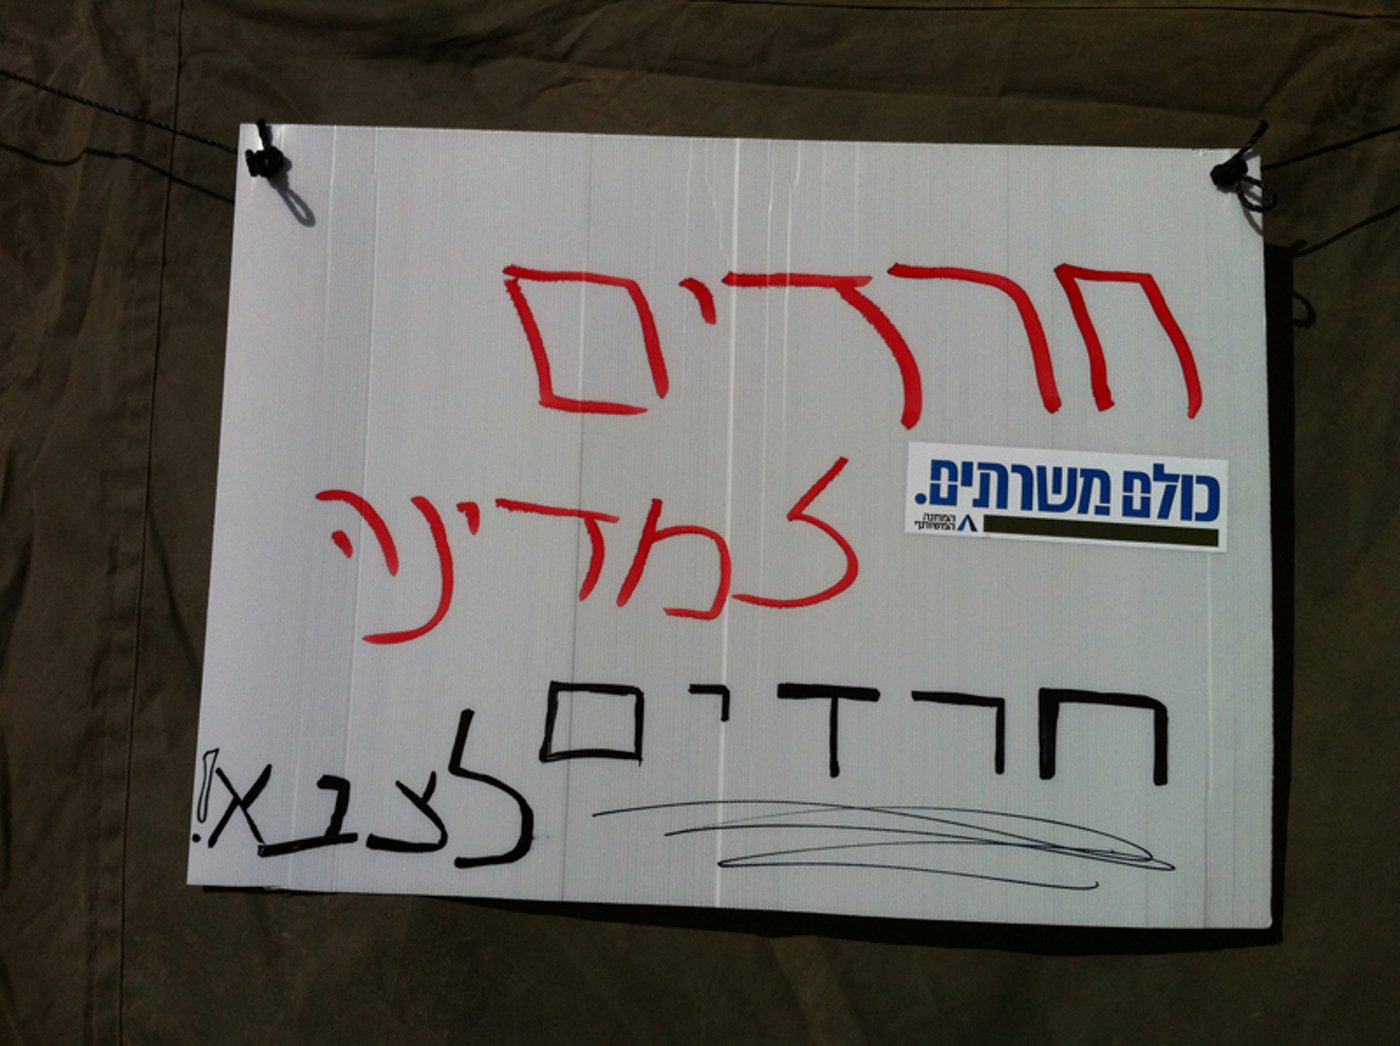 חרדים
כולם משרתים.
המחנה
המשותף
למדינה
חרדים
לצבא!